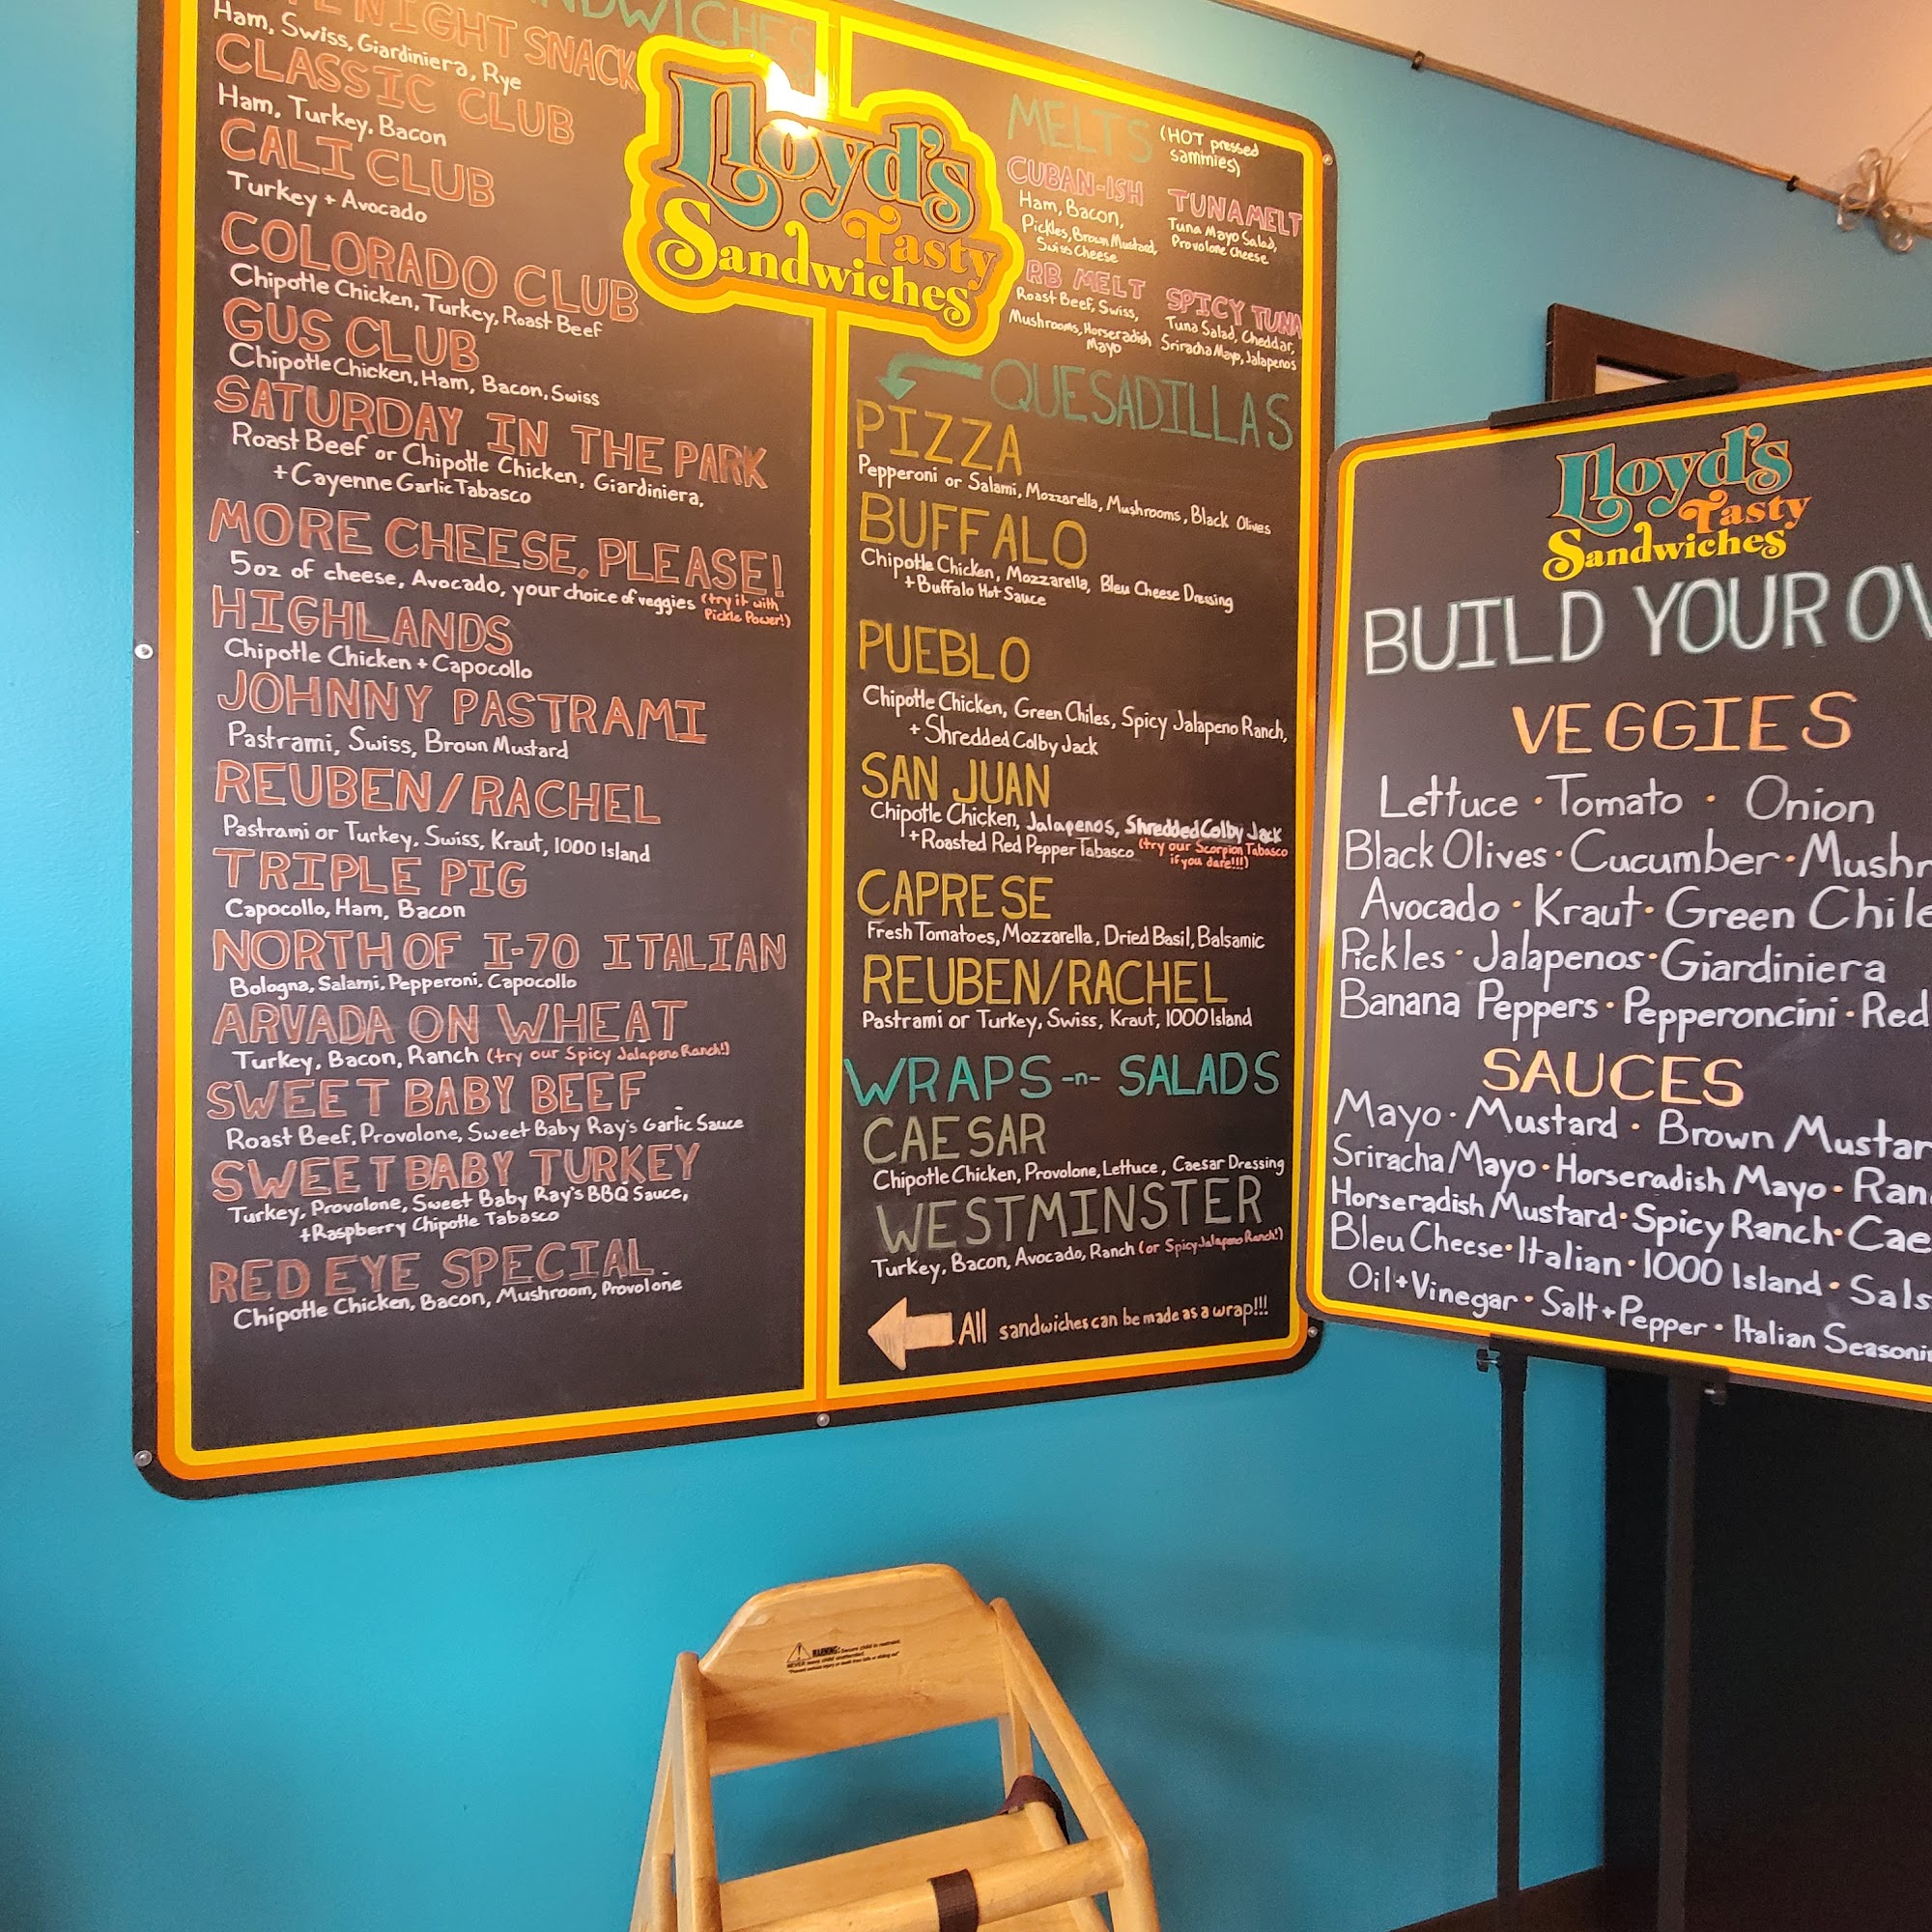 NIGHT SNACK
Ham, Swiss, Giardiniera, Rye
CLASSIC CLUB
Ham, Turkey, Bacon
CALI CLUB
Turkey + Avocado
COLORADO CLUB
Chipotle Chicken, Turkey, Roast Beef
GUS CLUB
Chipotle Chicken, Ham, Bacon, Swiss
SATURDAY IN THE PARK
Roast Beef or Chipotle Chicken, Giardiniera,
+ Cayenne Garlic Tabasco
MORE CHEESE, PLEASE!
5oz of cheese, Avocado, your choice of veggies (try it with
Pickle Power!)
HIGHLANDS
Chipotle Chicken + Capocollo
JOHNNY PASTRAMI
Pastrami, Swiss, Brown Mustard
REUBEN/RACHEL
Pastrami or Turkey, Swiss, Kraut, 1000 Island
TRIPLE PIG
Capocollo, Ham, Bacon
NORTH OF I-70 ITALIAN
Bologna, Salami, Pepperoni, Capocollo
ARVADA ON WHEAT
Turkey, Bacon, Ranch (try our Spicy Jalapeno Ranch!)
SWEET BABY BEEF
Roast Beef, Provolone, Sweet Baby Ray's Garlic Sauce
SWEET BABY TURKEY
Turkey, Provolone, Sweet Baby Ray's BBQ Sauce,
+Raspberry Chipotle Tabasco
RED EYE SPECIAL
Chipotle Chicken, Bacon, Mushroom, Provolone
Lloyd's
Tasty
Sandwiches
MELTS (HOT pressed
sammies)
CUBAN-ISH
Ham, Bacon,
Pickles, Brown Mustard,
Swiss Cheese
TUNA MELT
Tuna Mayo Salad,
Provolone Cheese
RB MELT
Roast Beef, Swiss,
Mushrooms, Horseradish
Mayo
SPICY TUNA
Tuna Salad, Cheddar,
Sriracha Mayo, Jalapenos
QUESADILLAS
PIZZA
Pepperoni or Salami, Mozzarella, Mushrooms, Black Olives
BUFFALO
Chipotle Chicken, Mozzarella, Bleu Cheese Dressing
+ Buffalo Hot Sauce
PUEBLO
Chipotle Chicken, Green Chiles, Spicy Jalapeno Ranch,
+ Shredded Colby Jack
SAN JUAN
Chipotle Chicken, Jalapenos, Shredded Colby Jack
+Roasted Red Pepper Tabasco (try our Scorpion Tabasco
if you dare!!!)
CAPRESE
Fresh Tomatoes, Mozzarella, Dried Basil, Balsamic
REUBEN/RACHEL
Pastrami or Turkey, Swiss, Kraut, 1000 Island
WRAPS -n- SALADS
CAESAR
Chipotle Chicken, Provolone, Lettuce, Caesar Dressing
WESTMINSTER
Turkey, Bacon, Avocado, Ranch (or Spicy Jalapeno Ranch!)
All sandwiches can be made as a wrap!!!
Lloyd's
Tasty
Sandwiches
BUILD YOUR
VEGGIES
Lettuce · Tomato · Onion
Black Olives · Cucumber ·
Avocado · Kraut · Green
Pickles · Jalapenos · Giardiniera
Banana Peppers · Pepperoncini · Red
SAUCES
Mayo · Mustard · Brown
Sriracha Mayo · Horseradish Mayo ·
Horseradish Mustard · Spicy Ranch ·
Bleu Cheese · Italian · 1000 Island ·
Oil + Vinegar · Salt + Pepper · Italian
WARNING: Secure child in restraint.
NEVER leave child unattended.